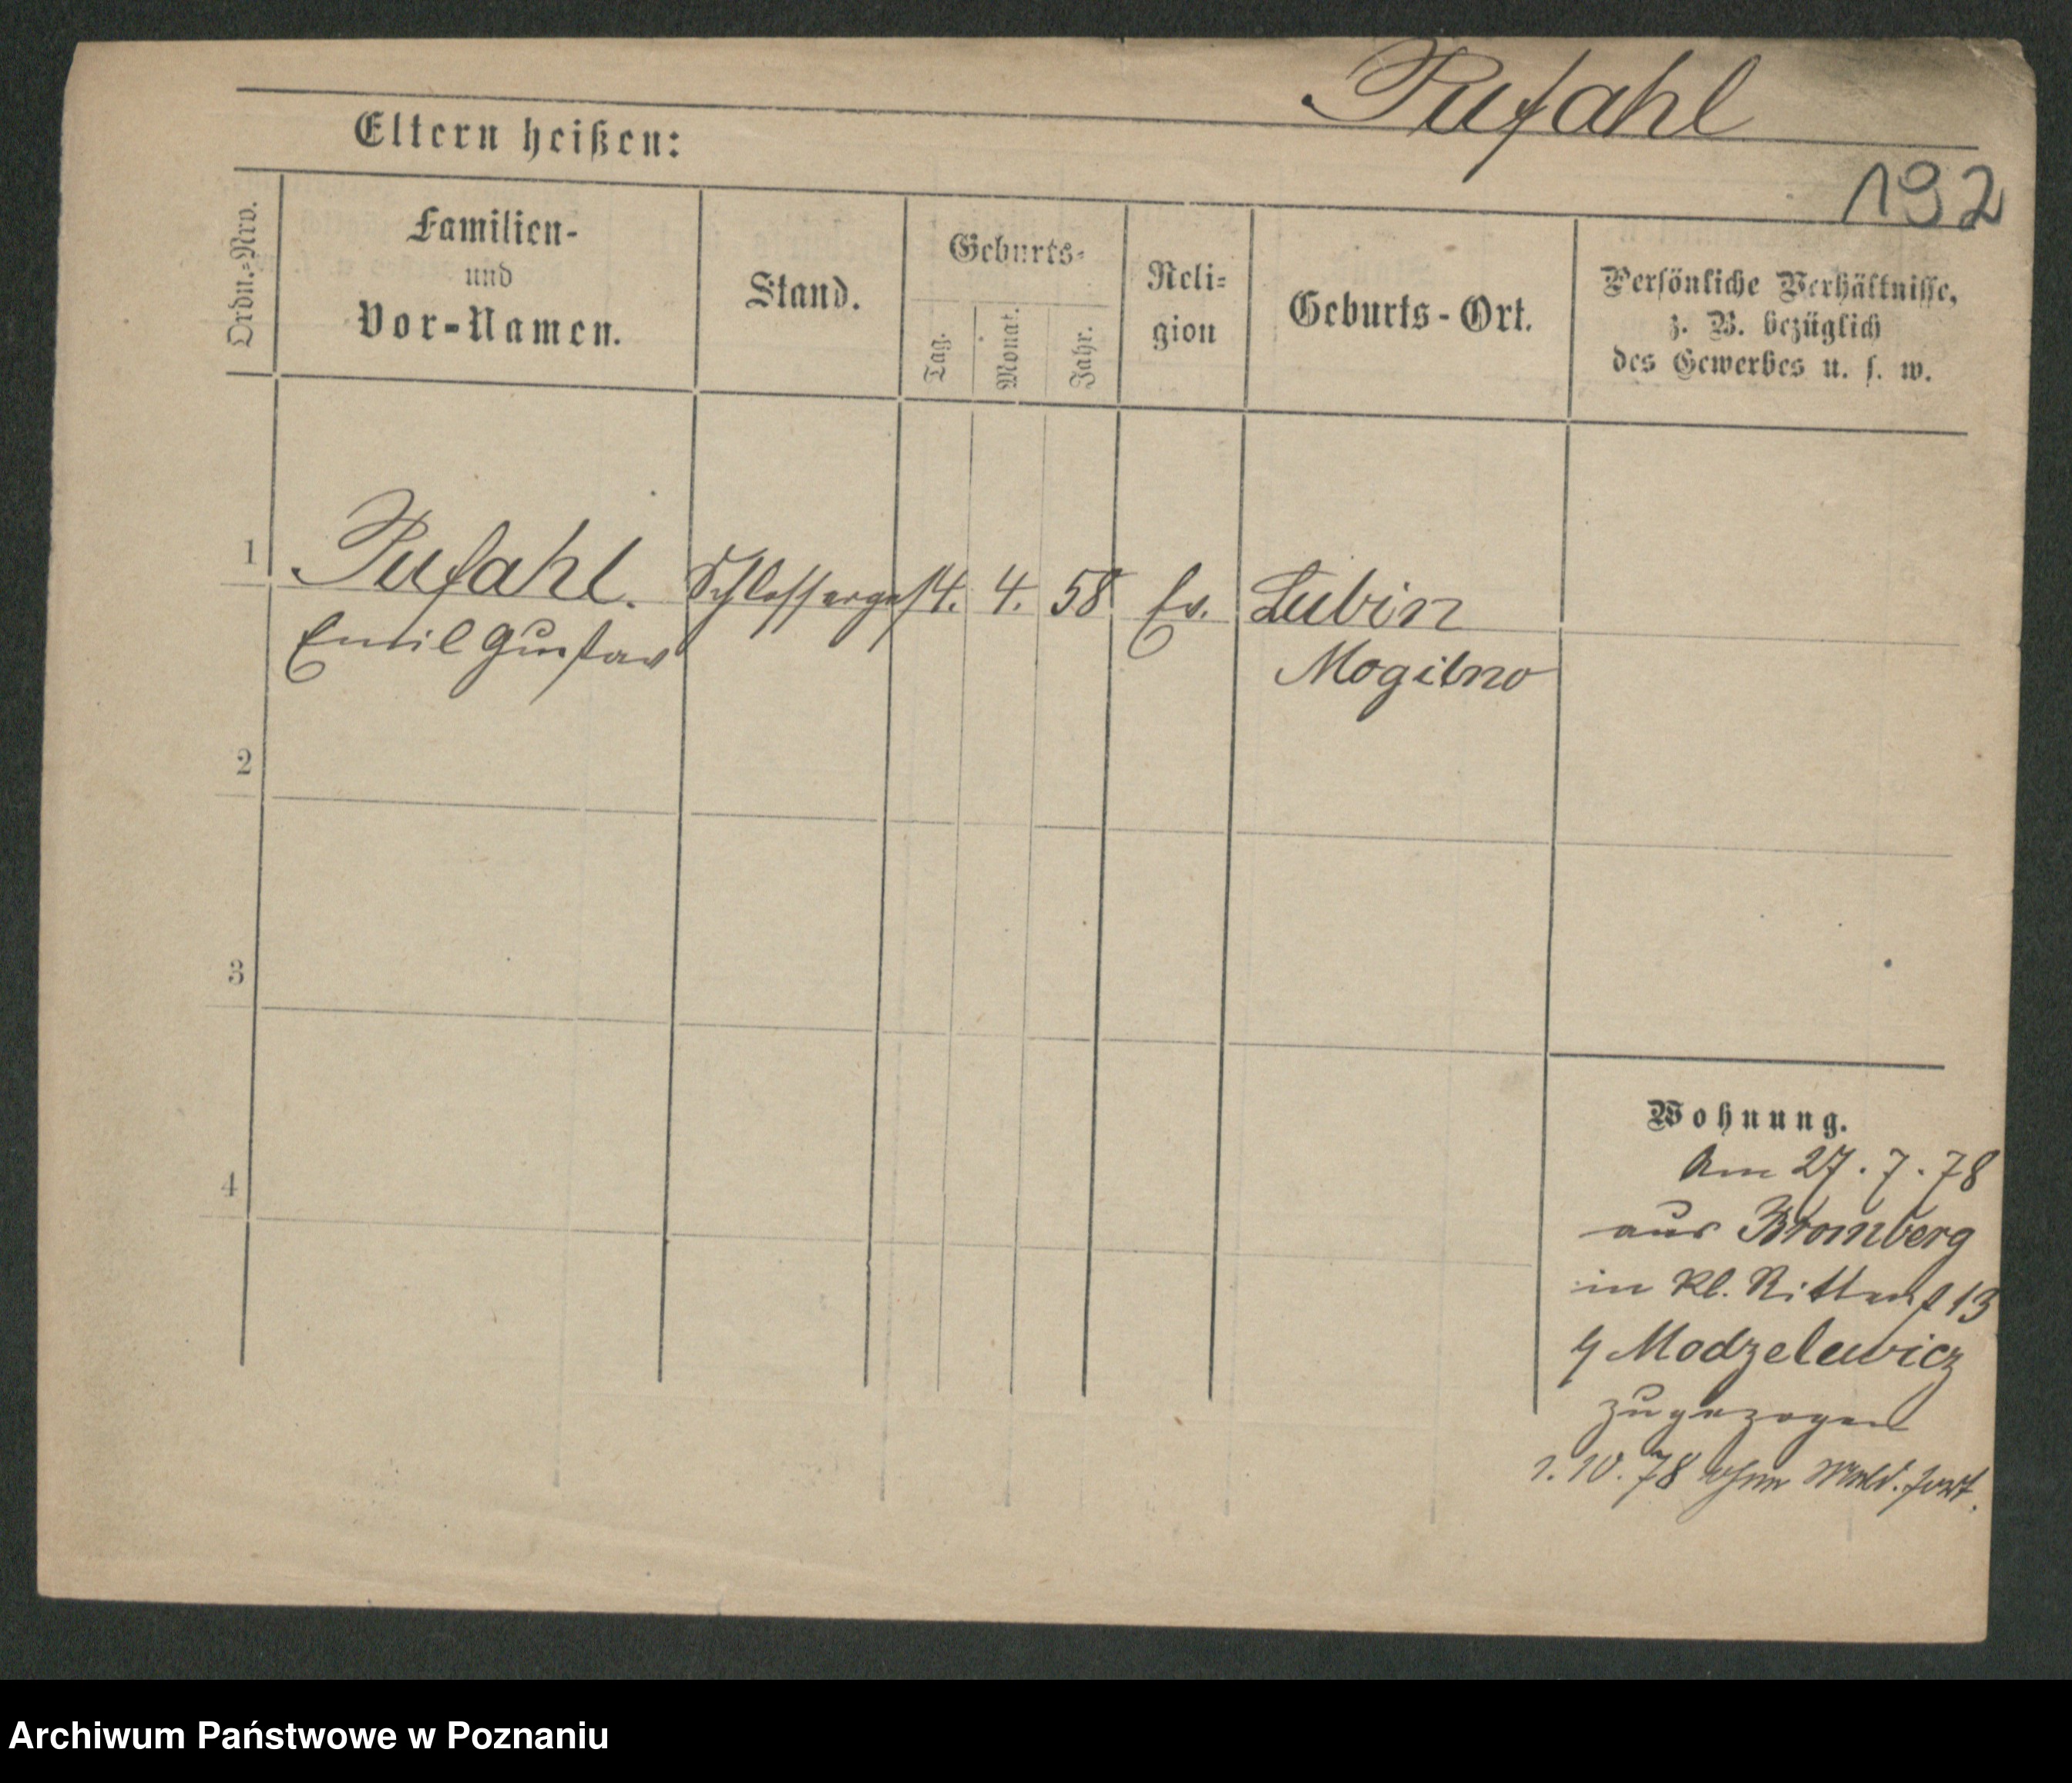 Pufahl
Eltern heißen:
192
Ordn.-Nro.
Familien-
und
Vor-Namen.
Stand.
Geburts-
Tag.
Monat.
Jahr.
Reli-
gion
Geburts-Ort.
Persönliche Verhältnisse,
z. B. bezüglich
des Gewerbes u. s. w.
1
Pufahl. Schlosserges 14. 4. 58 Ev. Lubin
Emil Gustav Mogilno
2
3
4
Wohnung.
Am 27.7.78
aus Bromberg
in Kl. Ritterst 13
Modzelewicz
zugezogen
1.10.78 ohne Meld. fort.
Archiwum Państwowe w Poznaniu